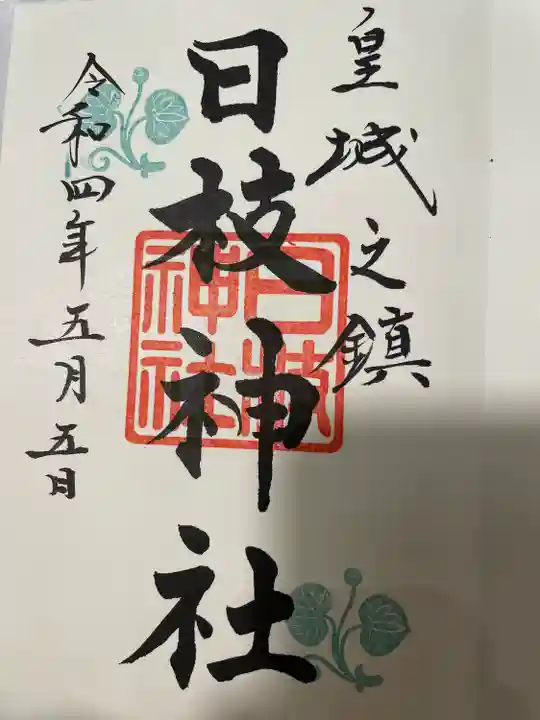 皇城之鎮
日枝神社
日枝神社
令和四年五月五日